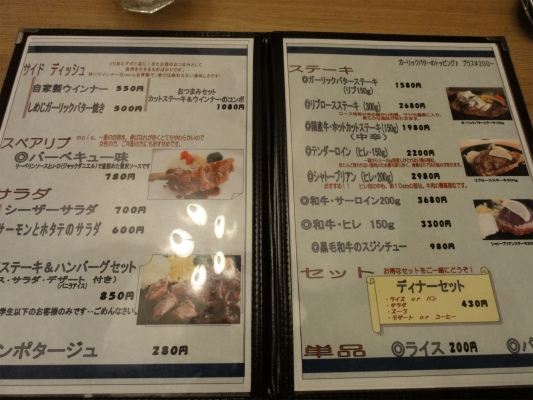 サイド ディッシュ
自家製ウインナー 550円
しめじガーリックバター焼き 500円
おつまみセット
カットステーキ&ウインナーのコンボ
1080円
スペアリブ
◎バーベキュー味
780円
サラダ
シーザーサラダ 700円
サーモンとホタテのサラダ 600円
ステーキ&ハンバーグセット
ス・サラダ・デザート 付き)
(バニラアイス)
850円
学生以下のお客様のみです・・ごめんなさい。
ンポタージュ 280円
ガーリックバターのトッピング♪ プラス¥200-
ステーキ
◎ガーリックバターステーキ
(リブ150g) 1580円
◎リブロースステーキ(300g) 2680円
◎国産牛・ホットカットステーキ(150g) 1980円
(中辛)
◎テンダーロイン(ヒレ・150g) 2200円
◎シャトーブリアン(ヒレ・200g) 2980円
◎和牛・サーロイン200g 3680円
◎和牛・ヒレ 150g 3300円
◎黒毛和牛のスジシチュー 980円
セット
お得なセットをご一緒にどうぞ!
ディナーセット
・ライス or パン
・サラダ
・スープ
・デザート or コーヒー
430円
単品 ◎ライス 200円 ◎パ